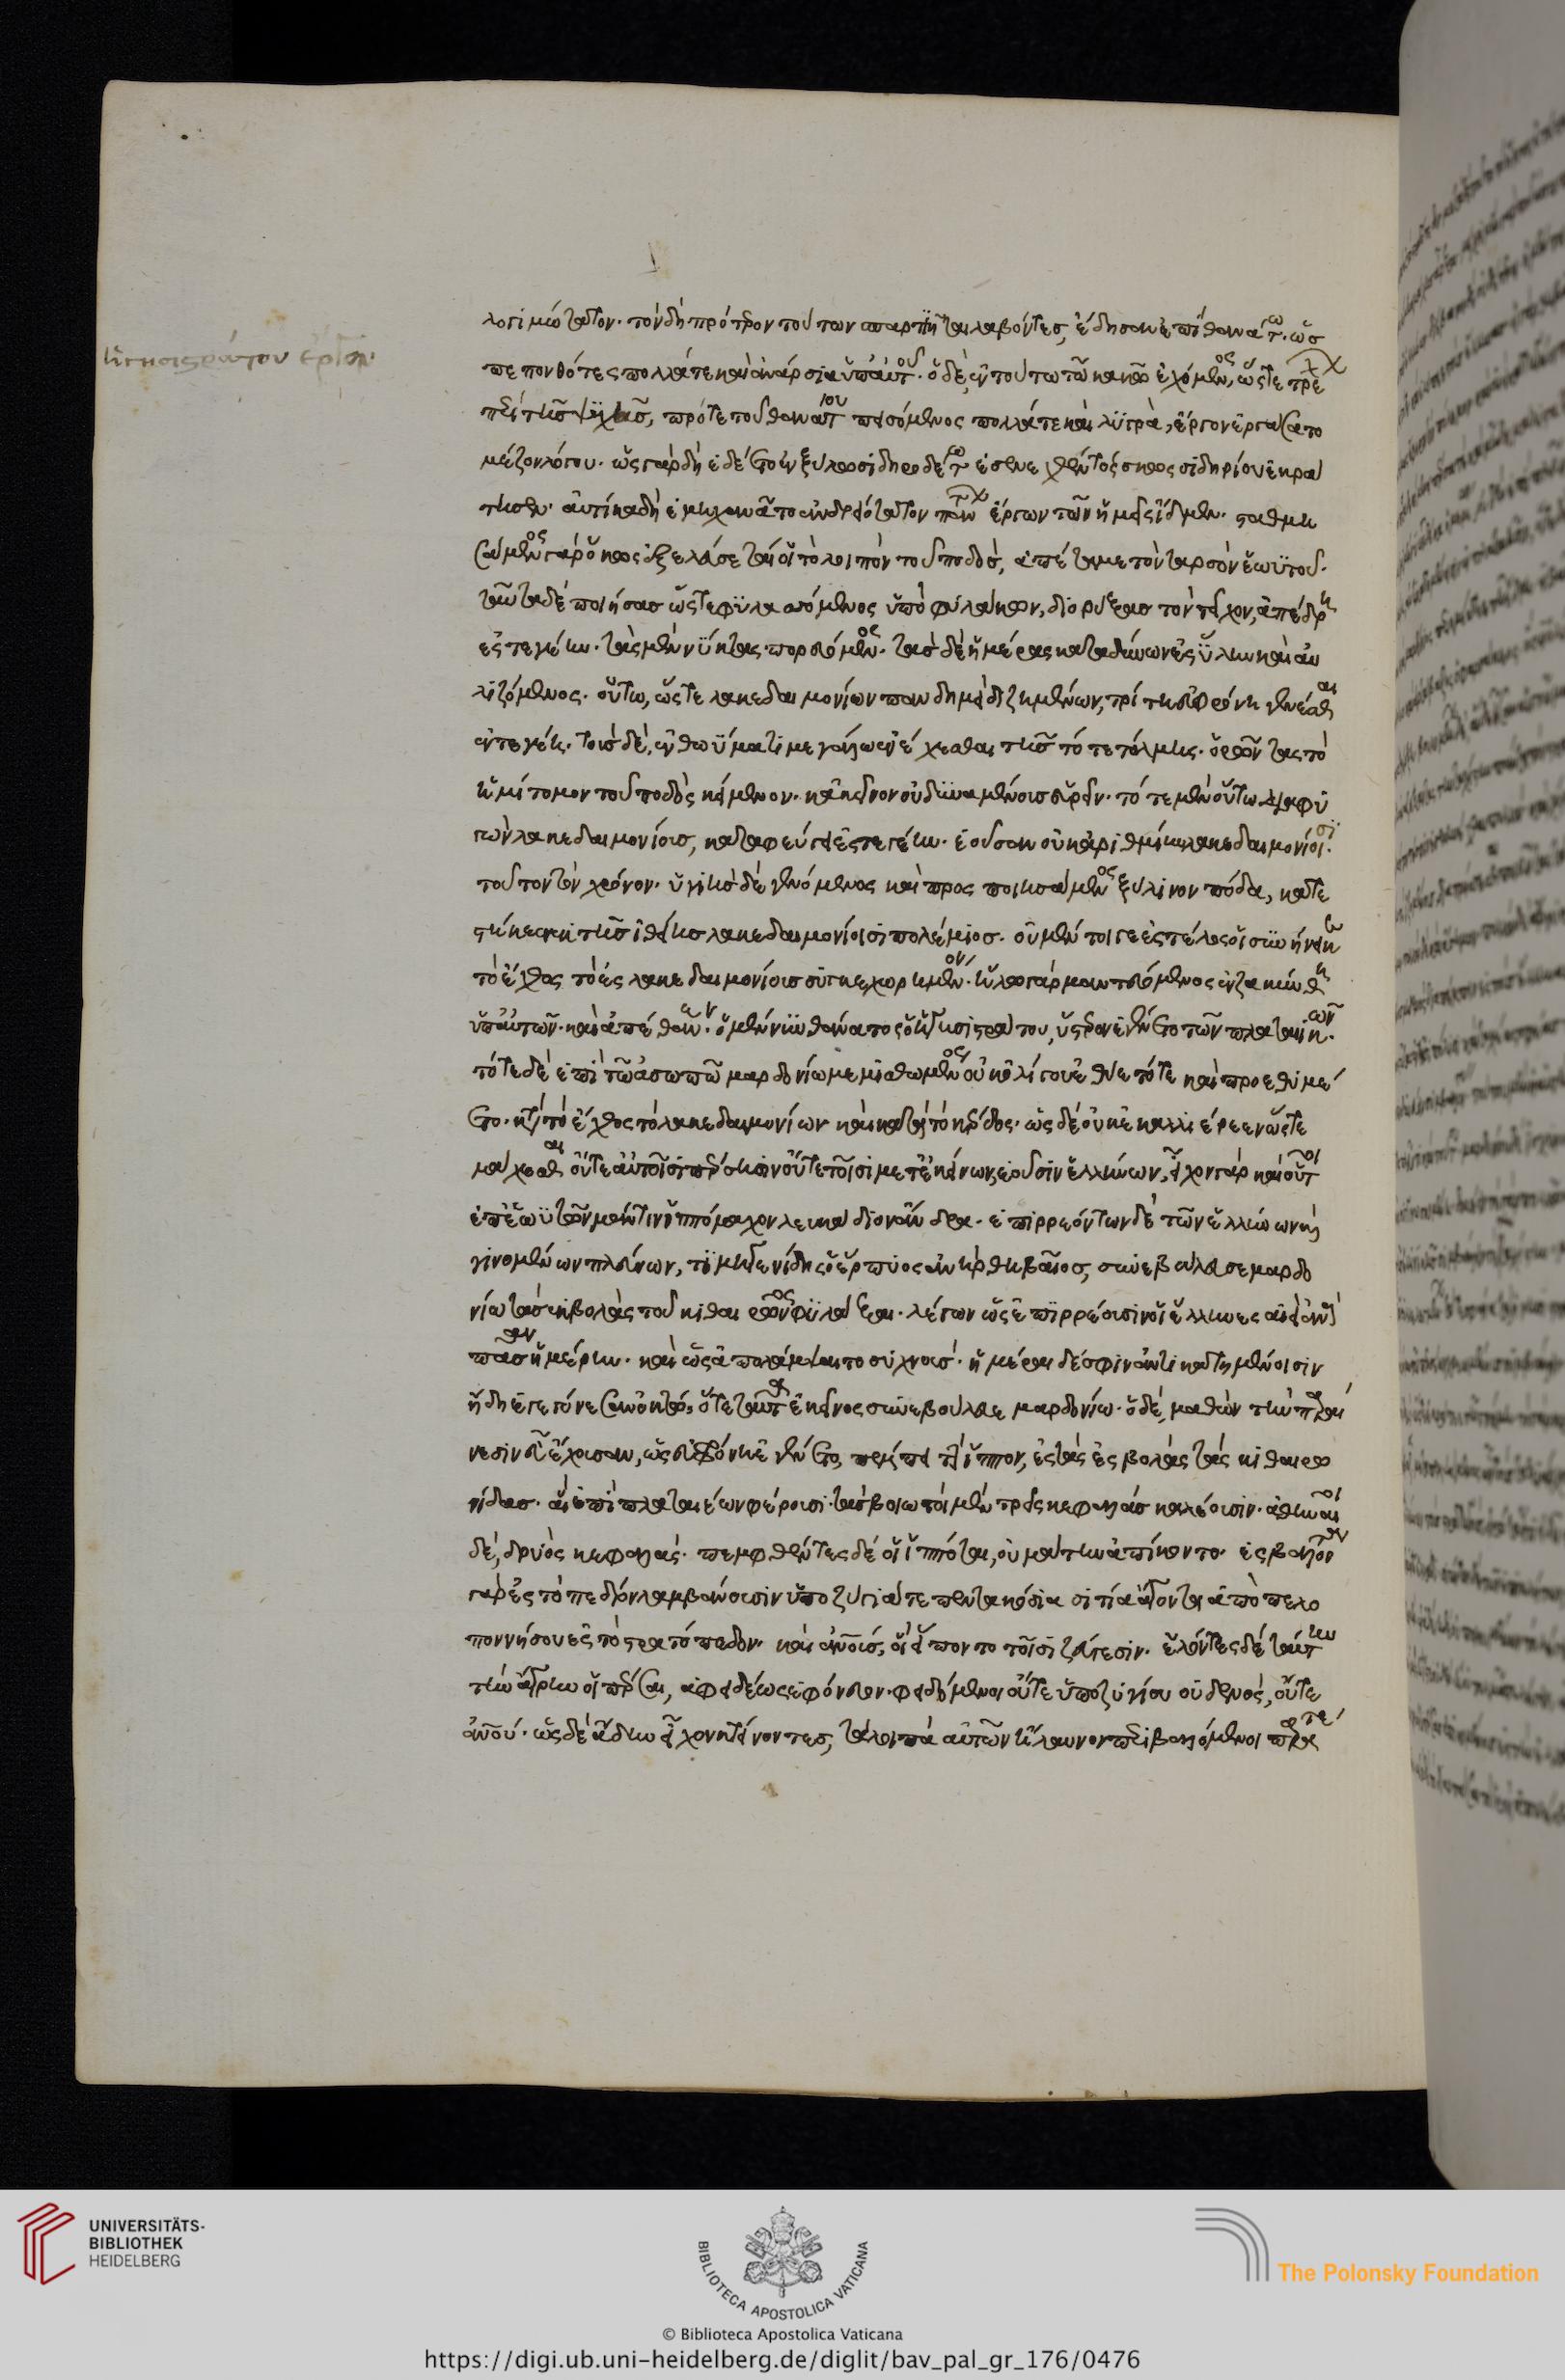 λογιμώτατον. τὸν δὴ πρότερον τούτων σπαρτιῆται λαβόντες, ἔδησαν ἐπὶ θανάτω. ὡς
πεπονθότες πολλά τε καὶ ἀνάρσια ὑπ' αὐτοῦ. ὁ δὲ, ἐν τούτω τῶ κακῶ ἐχόμενος, ὥστε τρέχων
περὶ τῆς ψυχῆς, πρό τε τοῦ θανάτου πεισόμενος πολλά τε καὶ λυγρὰ, ἔργον ἐργάσατο
μέζον λόγου. ὡς γὰρ δὴ ἐδέδετο ἐν ξύλω σιδηροδέτω ἐσενειχθέντος κως σιδηρίου ἐκρά
τησεν. αὐτίκα δὴ ἐμηχανᾶτο ἀνδρειότατον πάντων ἔργων τῶν ἡμεῖς ἴδμεν. σταθμη
σάμενος γὰρ ὅκως ἐξελεύσεταί οἱ τὸ λοιπὸν τοῦ ποδὸς, ἀπέταμε τὸν ταρσὸν ἑωϋτοῦ.
ταῦτα δὲ ποιήσας ὥστε φυλασσόμενος ὑπὸ φυλάκων, διορύξας τὸν τεῖχον, ἀπέδρη
ἐς τεγέην. τὰς μὲν νύκτας πορευόμενος. τὰς δὲ ἡμέρας καταδύνων ἐς ὕλην καὶ αὐ
λιζόμενος. οὕτω, ὥστε λακεδαιμονίων πανδημεὶ διζημένων, τρίτη εὐφρόνη γενέσθαι
ἐν τεγέη. τοὺς δὲ, ἐν θωύματι μεγάλω ἐνέχεσθαι τῆς τό τε τόλμης. ὁρῶντας τὸ
ἡμίτομον τοῦ ποδὸς κείμενον. κἀκεῖνον οὐ δυναμένους εὑρεῖν. τότε μὲν οὕτω διαφυ
γὼν λακεδαιμονίους, καταφεύγει ἐς τεγέην. ἐοῦσαν οὐκ ἀρθμίην λακεδαιμονίοισι.
τοῦτον τὸν χρόνον. ὑγιὴς δὲ γενόμενος καὶ προσποιησάμενος ξύλινον πόδα, κατε
στήκεεν ἐκ τῆς ἰθείης λακεδαιμονίοισι πολέμιος. οὐ μέντοι γε ἐς τέλος οἱ συνήνεικε
τὸ ἔχθος τὸ ἐς λακεδαιμονίους συγκεχορημένον. ἥλω γὰρ μαντευόμενος ἐν ζακύνθω
ὑπ' αὐτῶν. καὶ ἀπέθανεν. ὁ μέν νυν θάνατος ὁ ἡγησιστράτου, ὕστερον ἐγένετο τῶν πλαταιικῶν.
τότε δὲ ἐπὶ τῶ ἀσωπῶ μαρδονίω μεμισθωμένος οὐκ ὀλίγου ἐθύετό τε καὶ προεθυμέ
ετο. κατὰ τὸ ἔχθος τὸ λακεδαιμονίων καὶ κατὰ τὸ κέρδος. ὡς δὲ οὐκ ἐκαλλιέρεεν ὥστε
μάχεσθαι οὔτε αὐτοῖσι πέρσησιν οὔτε τοῖσι μετ' ἐκείνων ἐοῦσιν ἑλλήνων, εἶχον γὰρ καὶ οὗτοι
ἐπ' ἑωϋτῶν μάντιν ἱππόμαχον λευκάδιον ἄνδρα. ἐπιρρεόντων δὲ τῶν ἑλλήνων καὶ
γινομένων πλεόνων, τιμηγενίδης ὁ ἕρπυος ἀνὴρ θηβαῖος, συνεβούλευσε μαρδο
νίω τὰς ἐκβολὰς τοῦ κιθαιρῶνος φυλάξαι. λέγων ὡς ἐπιρρέουσιν οἱ ἕλληνες αἰεὶ ἀνὰ
πᾶσαν ἡμέρην. καὶ ὡς ἀπολάμψαιτο συχνούς. ἡμέραι δέ σφιν ἀντικατημένοισιν
ἤδη ἐγεγόνεσαν ὀκτώ, ὅτε ταῦτα ἐκεῖνος συνεβούλευε μαρδονίω. ὁ δὲ, μαθὼν τὴν παραί
νεσιν εὖ ἔχουσαν, ὡς εὐφρόνη ἐγένετο, πέμπει τὴν ἵππον, ἐς τὰς ἐσβολὰς τὰς κιθαιρω
νίδας. αἳ ἐπὶ πλαταιέων φέρουσι. τὰς βοιωτοὶ μὲν τρεῖς κεφαλὰς καλέουσιν. ἀθηναῖοι
δὲ, δρυὸς κεφαλάς. πεμφθέντες δὲ οἱ ἱππόται, οὐ μάτην ἀπίκοντο. ἐσβάλλον
γὰρ ἐς τὸ πεδίον λαμβάνουσιν ὑποζύγιά τε πεντακόσια σιτία ἄγοντα ἀπὸ πελο
ποννήσου ἐς τὸ στρατόπεδον. καὶ ἀνθρώπους, οἳ εἵποντο τοῖσι ζεύγεσιν. ἑλόντες δὲ ταύτην
τὴν ἄγρην οἱ πέρσαι, ἀφειδέως ἐφόνευον. φειδόμενοι οὔτε ὑποζυγίου οὐδενὸς, οὔτε
ἀνθρώπου. ὡς δὲ ἄδην εἶχον κτείνοντες, τὰ λοιπὰ αὐτῶν ἤλαυνον περιβαλόμενοι παρά τε
UNIVERSITÄTS-
BIBLIOTHEK
HEIDELBERG
BIBLIOTECA APOSTOLICA VATICANA
The Polonsky Foundation
© Biblioteca Apostolica Vaticana
https://digi.ub.uni-heidelberg.de/diglit/bav_pal_gr_176/0476